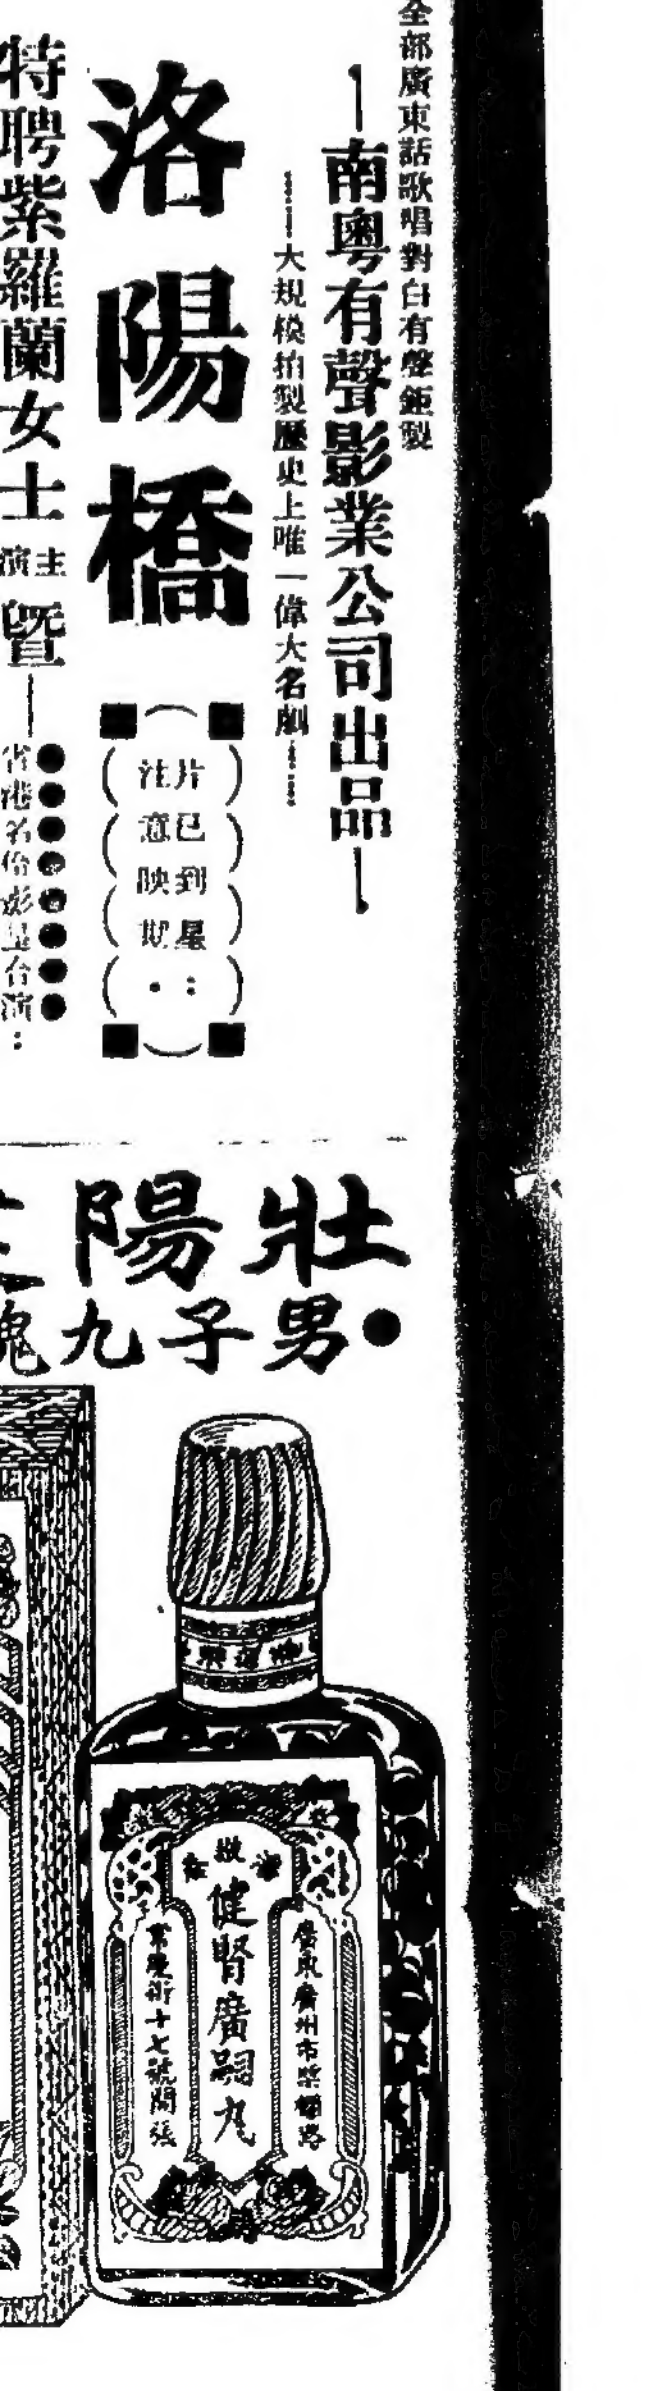 全部廣東話歌唱對白有聲鉅製
南粵有聲影業公司出品
大規模拍製歷史上唯一偉大名劇
洛陽橋
片已到星：
注意映期．
特聘紫羅蘭女士主演暨
省港名伶彭星合演：
壯陽
●男子九
健腎廣嗣丸
廣東廣州市槳欄路
十七號開張